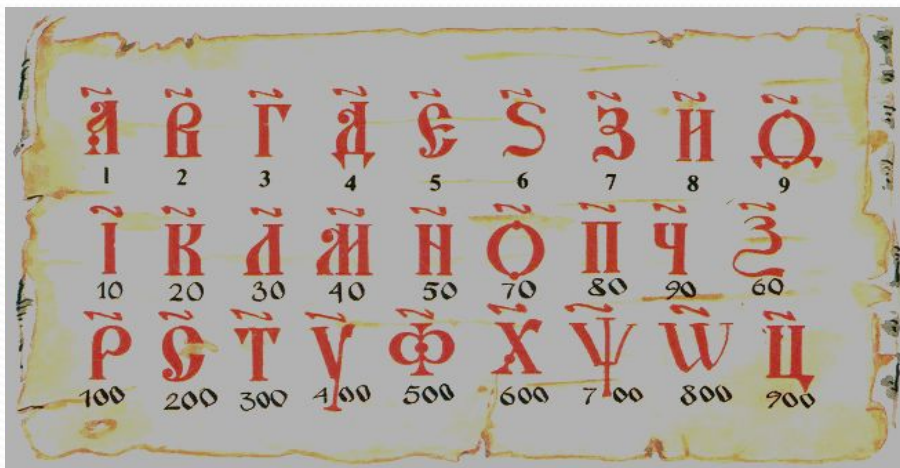 А҃ В҃ Г҃ Д҃ Є҃ Ѕ҃ З҃ И҃ Ѳ҃
1 2 3 4 5 6 7 8 9
І҃ К҃ Л҃ М҃ Н҃ Ѻ҃ П҃ Ч҃ Ѯ҃
10 20 30 40 50 70 80 90 60
Р҃ С҃ Т҃ Ѵ҃ Ф҃ Х҃ Ѱ҃ Ѡ҃ Ц҃
100 200 300 400 500 600 700 800 900